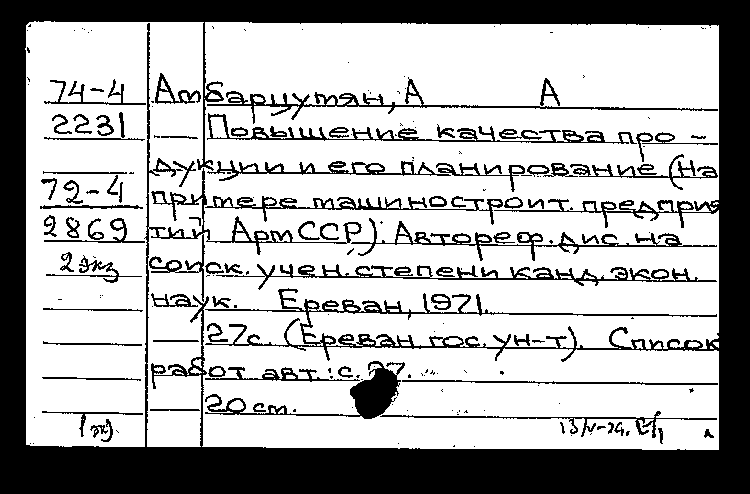 74-4 Амбарцумян, А А
2231 Повышение качества про-
дукции и его планирование (На
72-4 примере машиностроит. предприя
2869 тий Арм ССР). Автореф. дис. на
2 экз соиск. учен. степени канд. экон.
наук. Ереван, 1971.
27с. (Ереван. гос. ун-т). Список
работ авт.: с. 27.
20 cm.
1 эк)